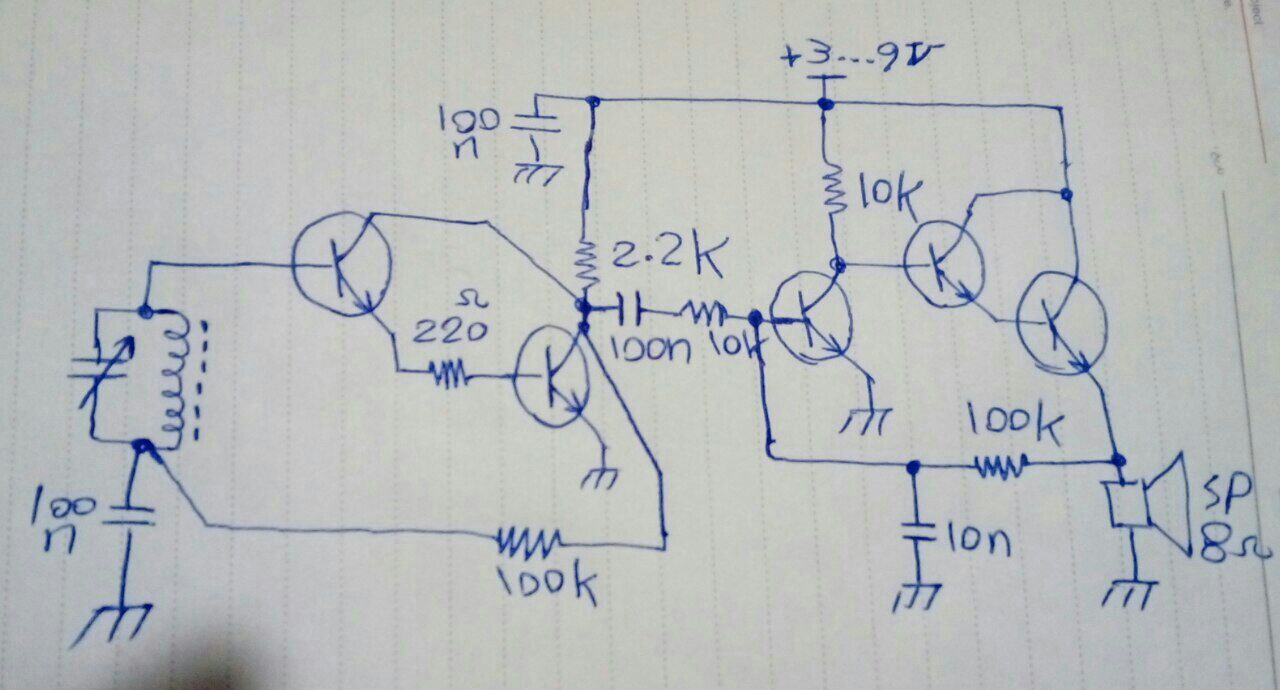 +3...9V
100
n
10k
2.2k
Ω
220
100n
10k
100k
SP
8Ω
100
n
10n
100k